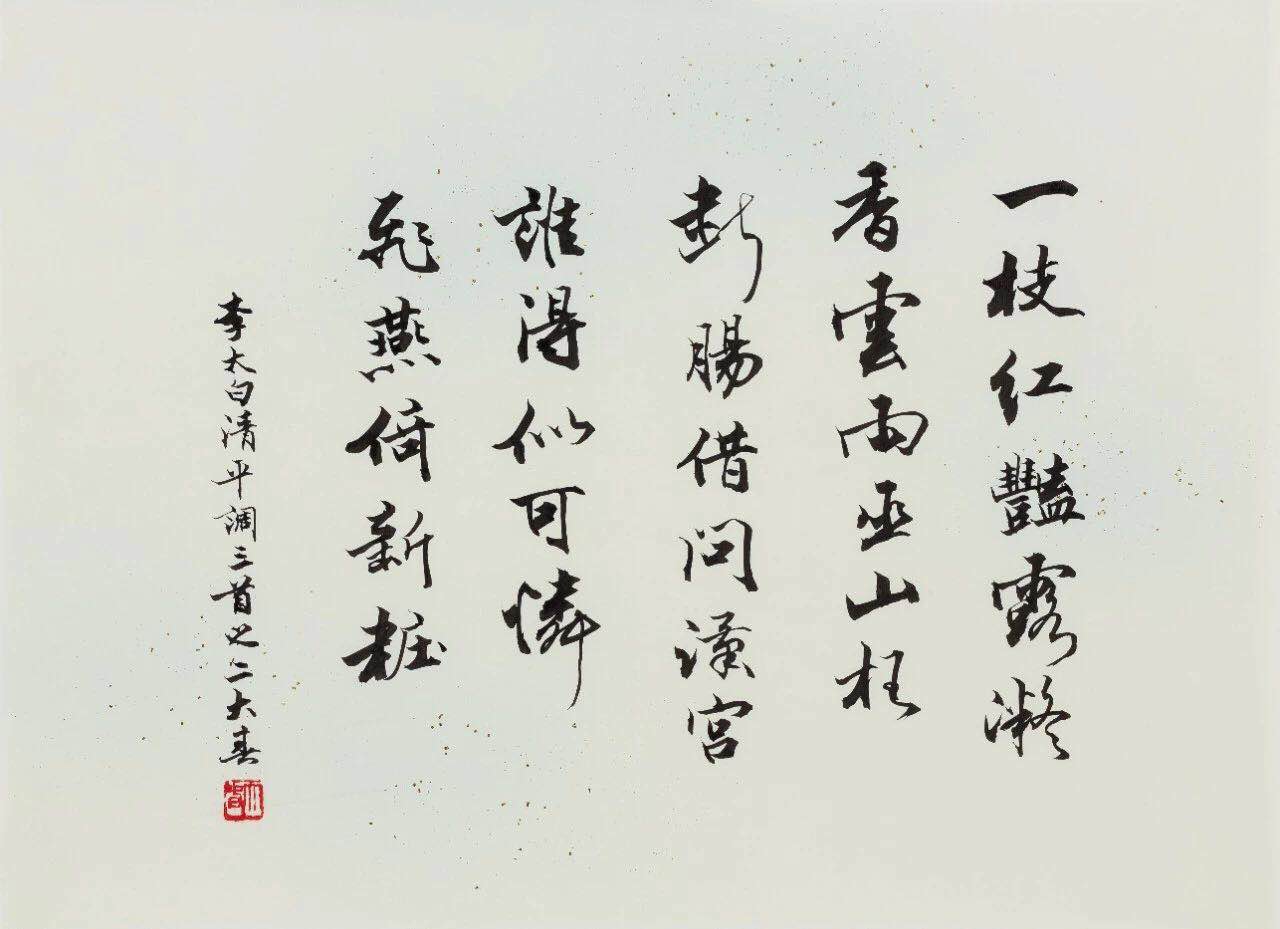 一枝红豔露凝
香雲雨巫山枉
断腸借问漢宫
誰得似可憐
飛燕倚新粧
李太白清平調三首之二大春
大春